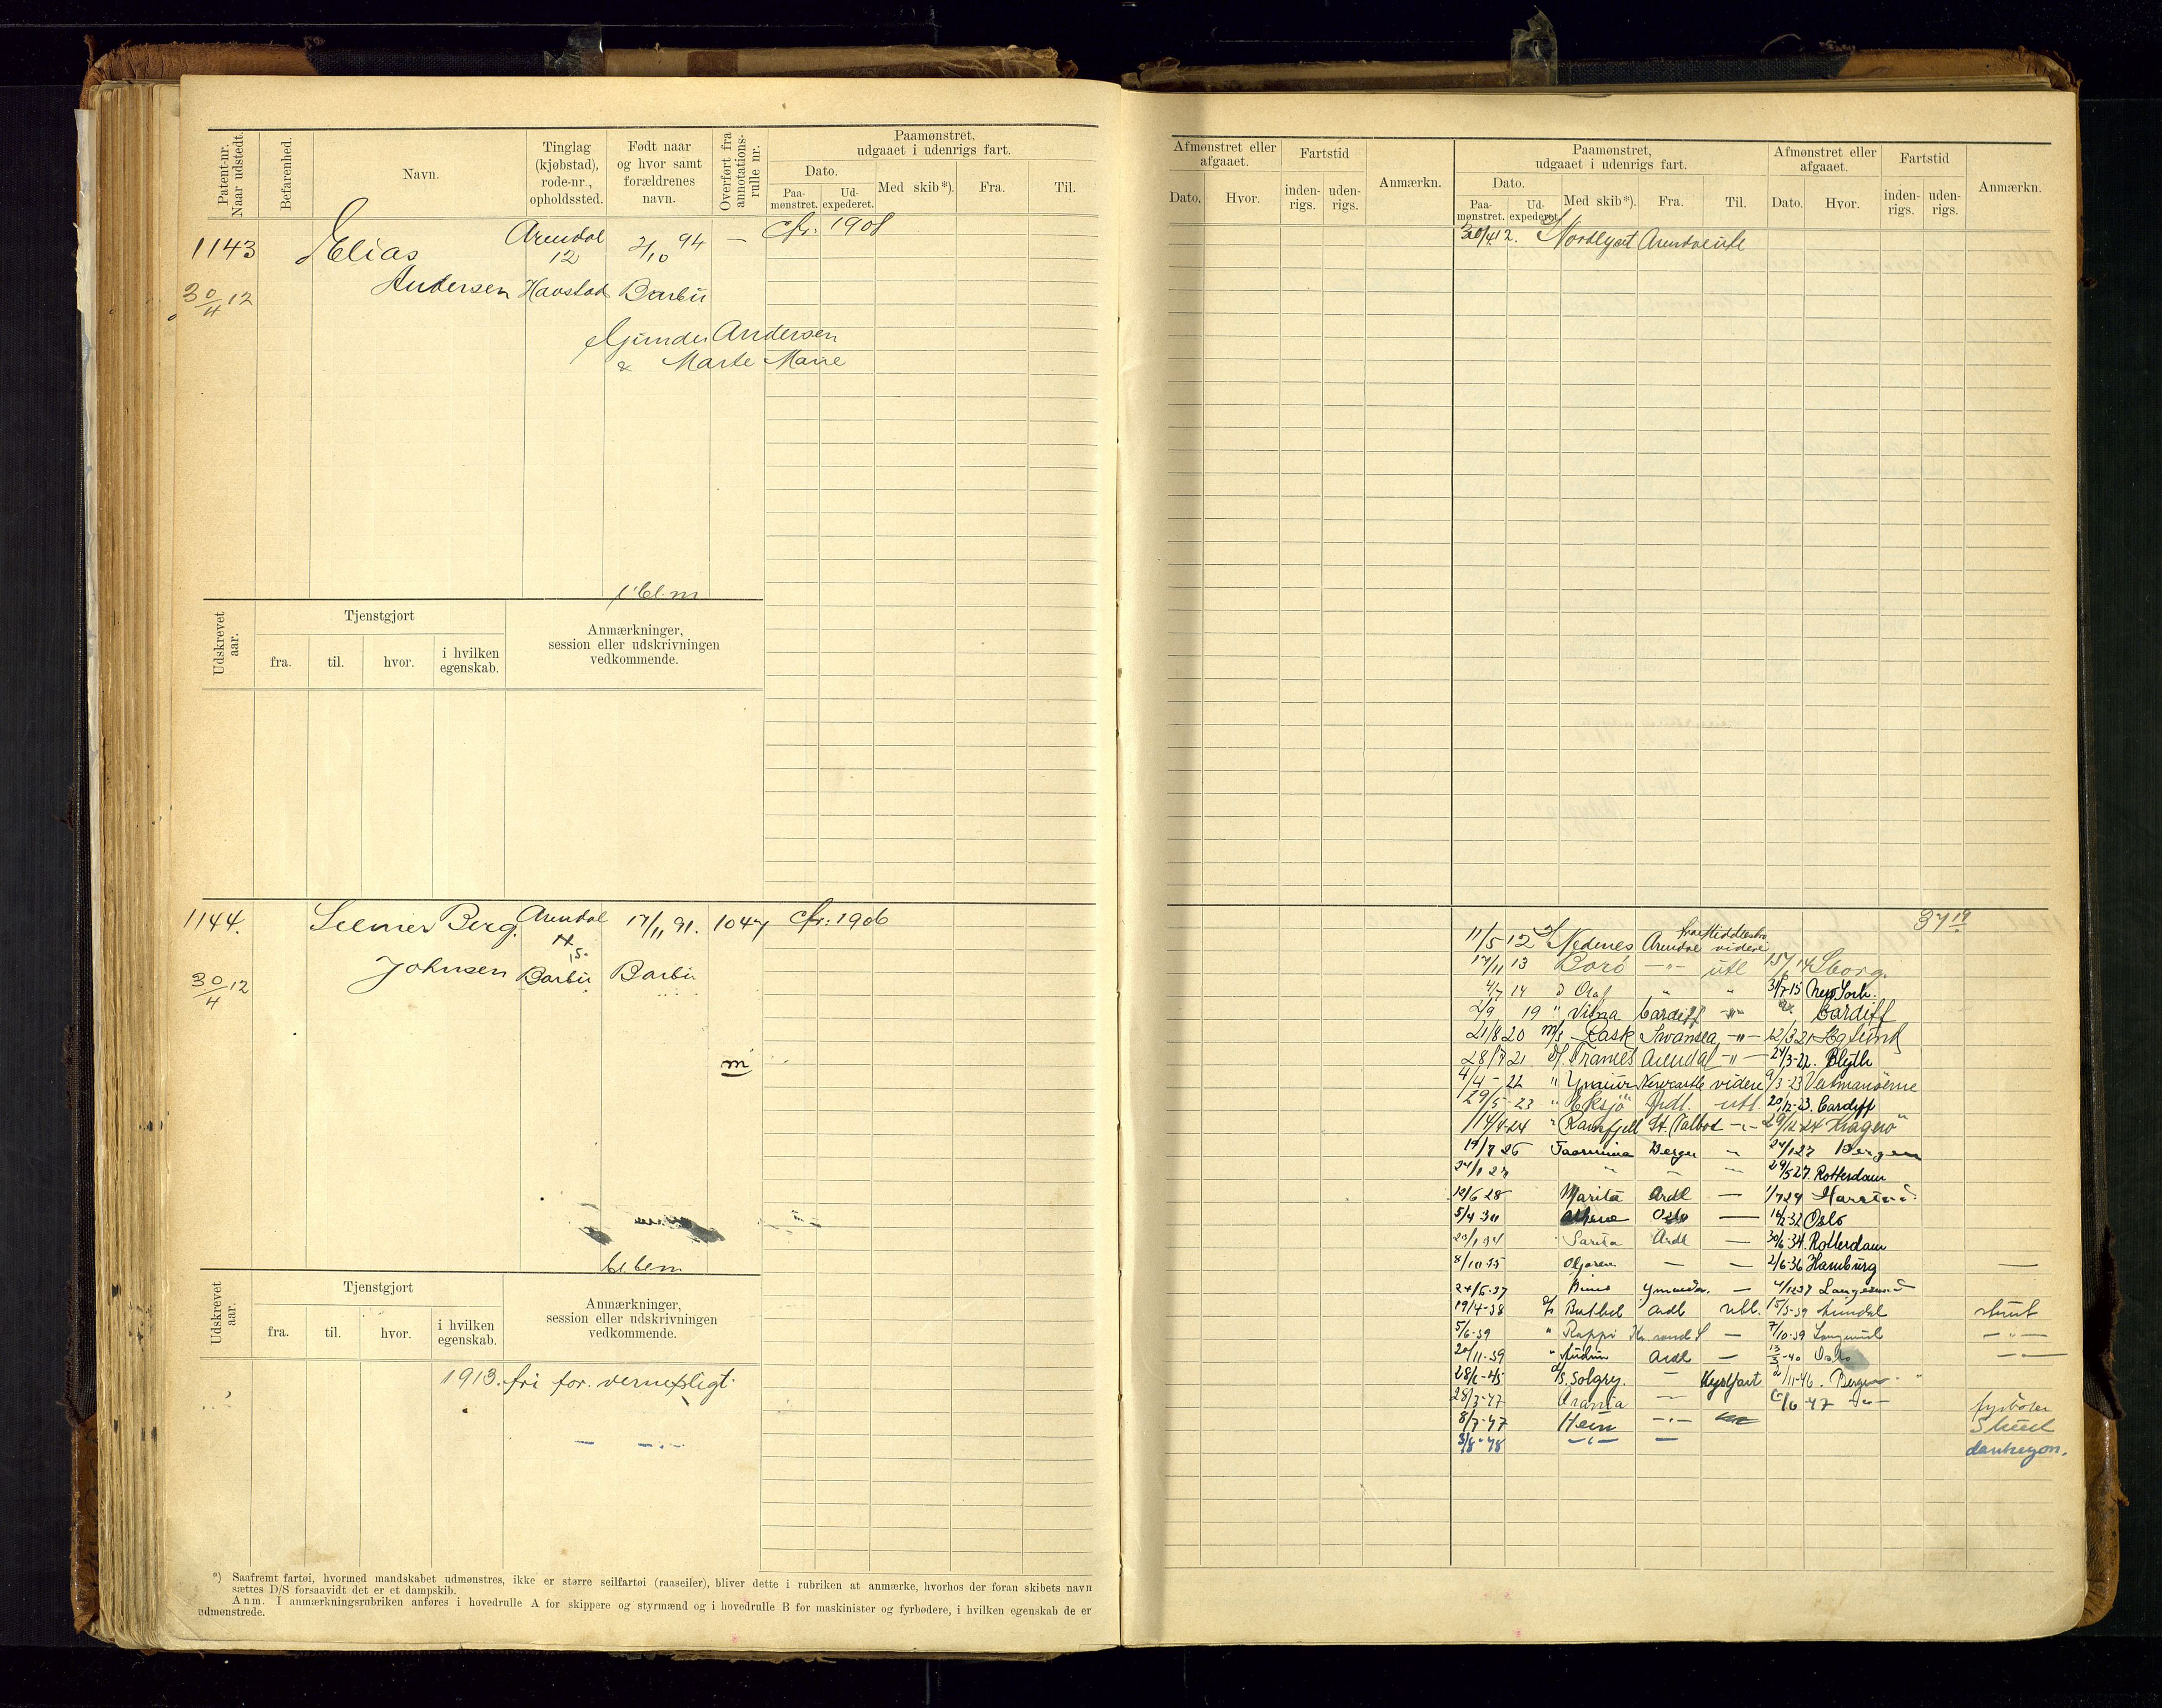 Patent-nr. Naar udstedt.
Befarenhed.
Navn.
Tinglag (kjøbstad), rode-nr., opholdssted.
Født naar og hvor samt forældrenes navn.
Overført fra annotations-rulle nr.
Paamønstret, udgaaet i udenrigs fart.
Dato.
Paa-mønstret.
Ud-expederet.
Med skib*).
Fra.
Til.
1143
Elias
Arendal
12
2/10 94
—
cfr. 1908
30/4 12
Andersen
Havstad
Barbu
Gunder Andersen
& Marte Marie
Udskrevet aar.
Tjenstgjort
fra.
til.
hvor.
i hvilken egenskab.
Anmærkninger, session eller udskrivningen vedkommende.
1144.
Selmer Berg
Arendal
17/11 91.
1047
cfr. 1906
30/4 12
Johnsen
Barbu
Barbu
m
Udskrevet aar.
Tjenstgjort
fra.
til.
hvor.
i hvilken egenskab.
Anmærkninger, session eller udskrivningen vedkommende.
1913. fri for vernepligt.
*) Saafremt fartøi, hvormed mandskabet udmønstres, ikke er større seilfartøi (raaseiler), bliver dette i rubriken at anmærke, hvorhos der foran skibets navn
sættes D/S forsaavidt det er et dampskib.
Anm. I anmærkningsrubriken anføres i hovedrulle A for skippere og styrmænd og i hovedrulle B for maskinister og fyrbødere, i hvilken egenskab de er
udmønstrede.
Afmønstret eller afgaaet.
Dato.
Hvor.
Fartstid
inden-rigs.
uden-rigs.
Anmærkn.
Paamønstret, udgaaet i udenrigs fart.
Dato.
Paa-mønstret.
Ud-expederet.
Med skib*).
Fra.
Til.
Afmønstret eller afgaaet.
Dato.
Hvor.
Fartstid
inden-rigs.
uden-rigs.
Anmærkn.
30/4 12. Nordlyset Arendal utl
37 19
11/5 12 Nedenes Arendal Middlesbro videre
17/11 13 Borø — " — utl
4/7 14 d Olaf " " 31/7-15 New York.
2/9 19 " Visna Cardiff — " — Cardiff
21/8 20 m/s Rask Swansea — " — 12/3 21
28/7 21 D/ Framnes Arendal — " — 24/3-22. Blyth
4/4 - 22 " Newcastle videre 9/3-23
29/5-23 " Eksjö Ardl. utl. 20/12-23. Cardiff
14/4-24 " Ramfjell St. — " — 29/11-24 Kragerø
19/7 26 Taormina Bergen " 24/1 27 Bergen
24/1 27 " — 29/5 27. Rotterdam
12/6 28 Marita Ardl — 1/7 29
5/4 30 Oslo — 14/2 32 Oslo
Sarita Ardl — 30/6-34. Rotterdam
8/10 35 — — 2/6-36 Hamburg —
24/6-37 — 4/12 37 Langesund
19/4-38 Ardl utl. 15/3-39 Arendal stuert
5/6-39 " Rappi Kr.sand S — 7/10-39 — " —
20/11-39 " Audun Ardl — 13/3-40 Oslo — " —
28/6-45 d/s. Solgry. — Kystfart 2/11-46. Bergen
28/3-47 Arania — 6/6 47 — " — fyrbøter
8/7-47 Hein — " — Stuert
3/8-48 — " — —